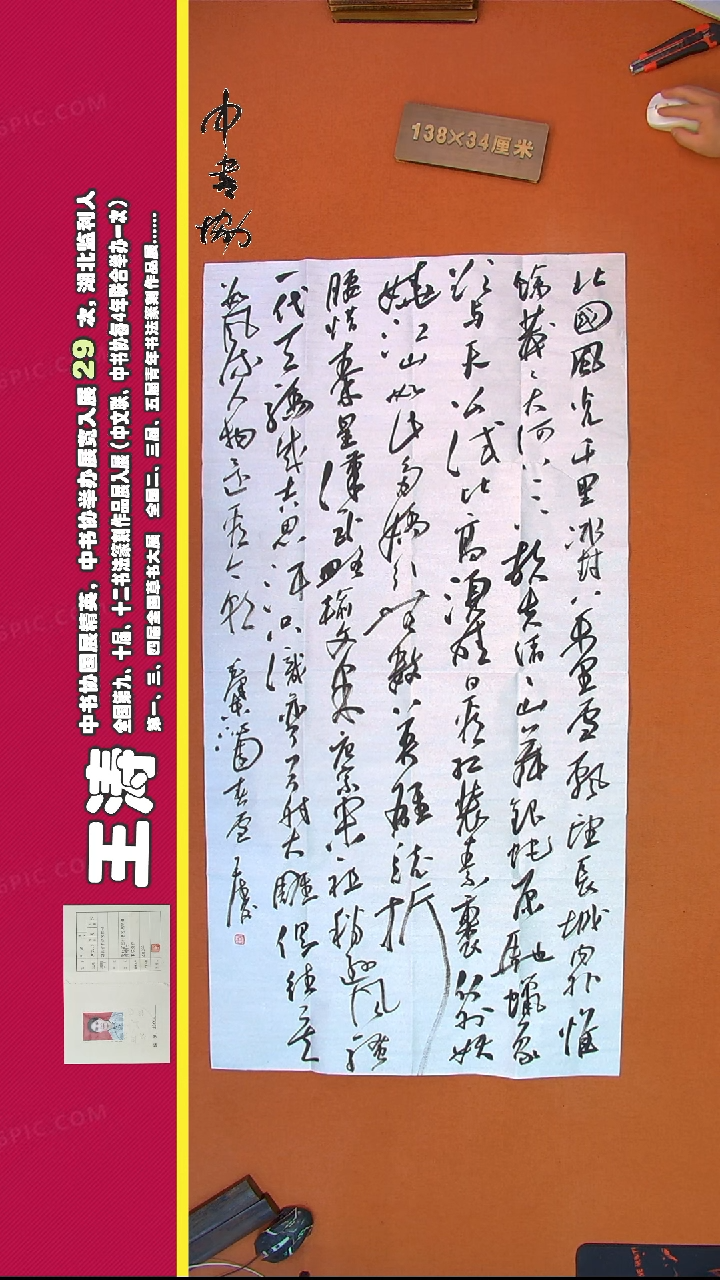 中书协
138×34厘米
北國風光千里冰封萬里雪飄望長城内外惟
餘莽々大河上下頓失滔々山舞銀蛇原馳蠟象
欲與天公試比高須晴日看紅裝素裹分外妖
嬈江山如此多嬌引無數英雄競折
腰惜秦皇漢武略輸文采唐宗宋祖稍遜風騷
一代天驕成吉思汗只識彎弓射大雕俱往矣
數風流人物還看今朝 沁園春雪 王濤
王涛
中书协国展精英，中书协举办展览入展29次，湖北监利人
全国第九、十届、十二书法篆刻作品展入展（中文联、中书协每4年联合举办一次）
第一、三、四届全国草书大展 全国二、三届、五届青年书法篆刻作品展......